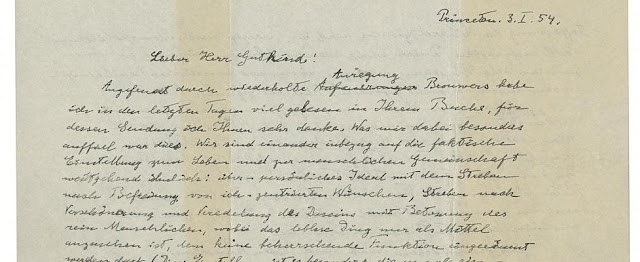 Princeton. 3. I. 54.
Lieber Herr Gutkind!
Anregung
Angefeuert durch wiederholte Brouwers habe
ich in den letzten Tagen viel gelesen in Ihrem Buche, für
dessen Sendung ich Ihnen sehr danke. Was mir dabei besonders
auffiel war dies. Wir sind einander inbezug auf die faktische
Einstellung zum Leben und zur menschlichen Gemeinschaft
weitgehend ähnlich: persönliches Ideal mit dem Streben
nach Befreiung von ich-zentrierten Wünschen, Streben nach
Verschönerung und Veredelung des Daseins mit Betonung des
rein Menschlichen, wobei das leblose Ding nur als Mittel
anzusehen ist, dem keine beherrschende Funktion eingeräumt
werden darf. (